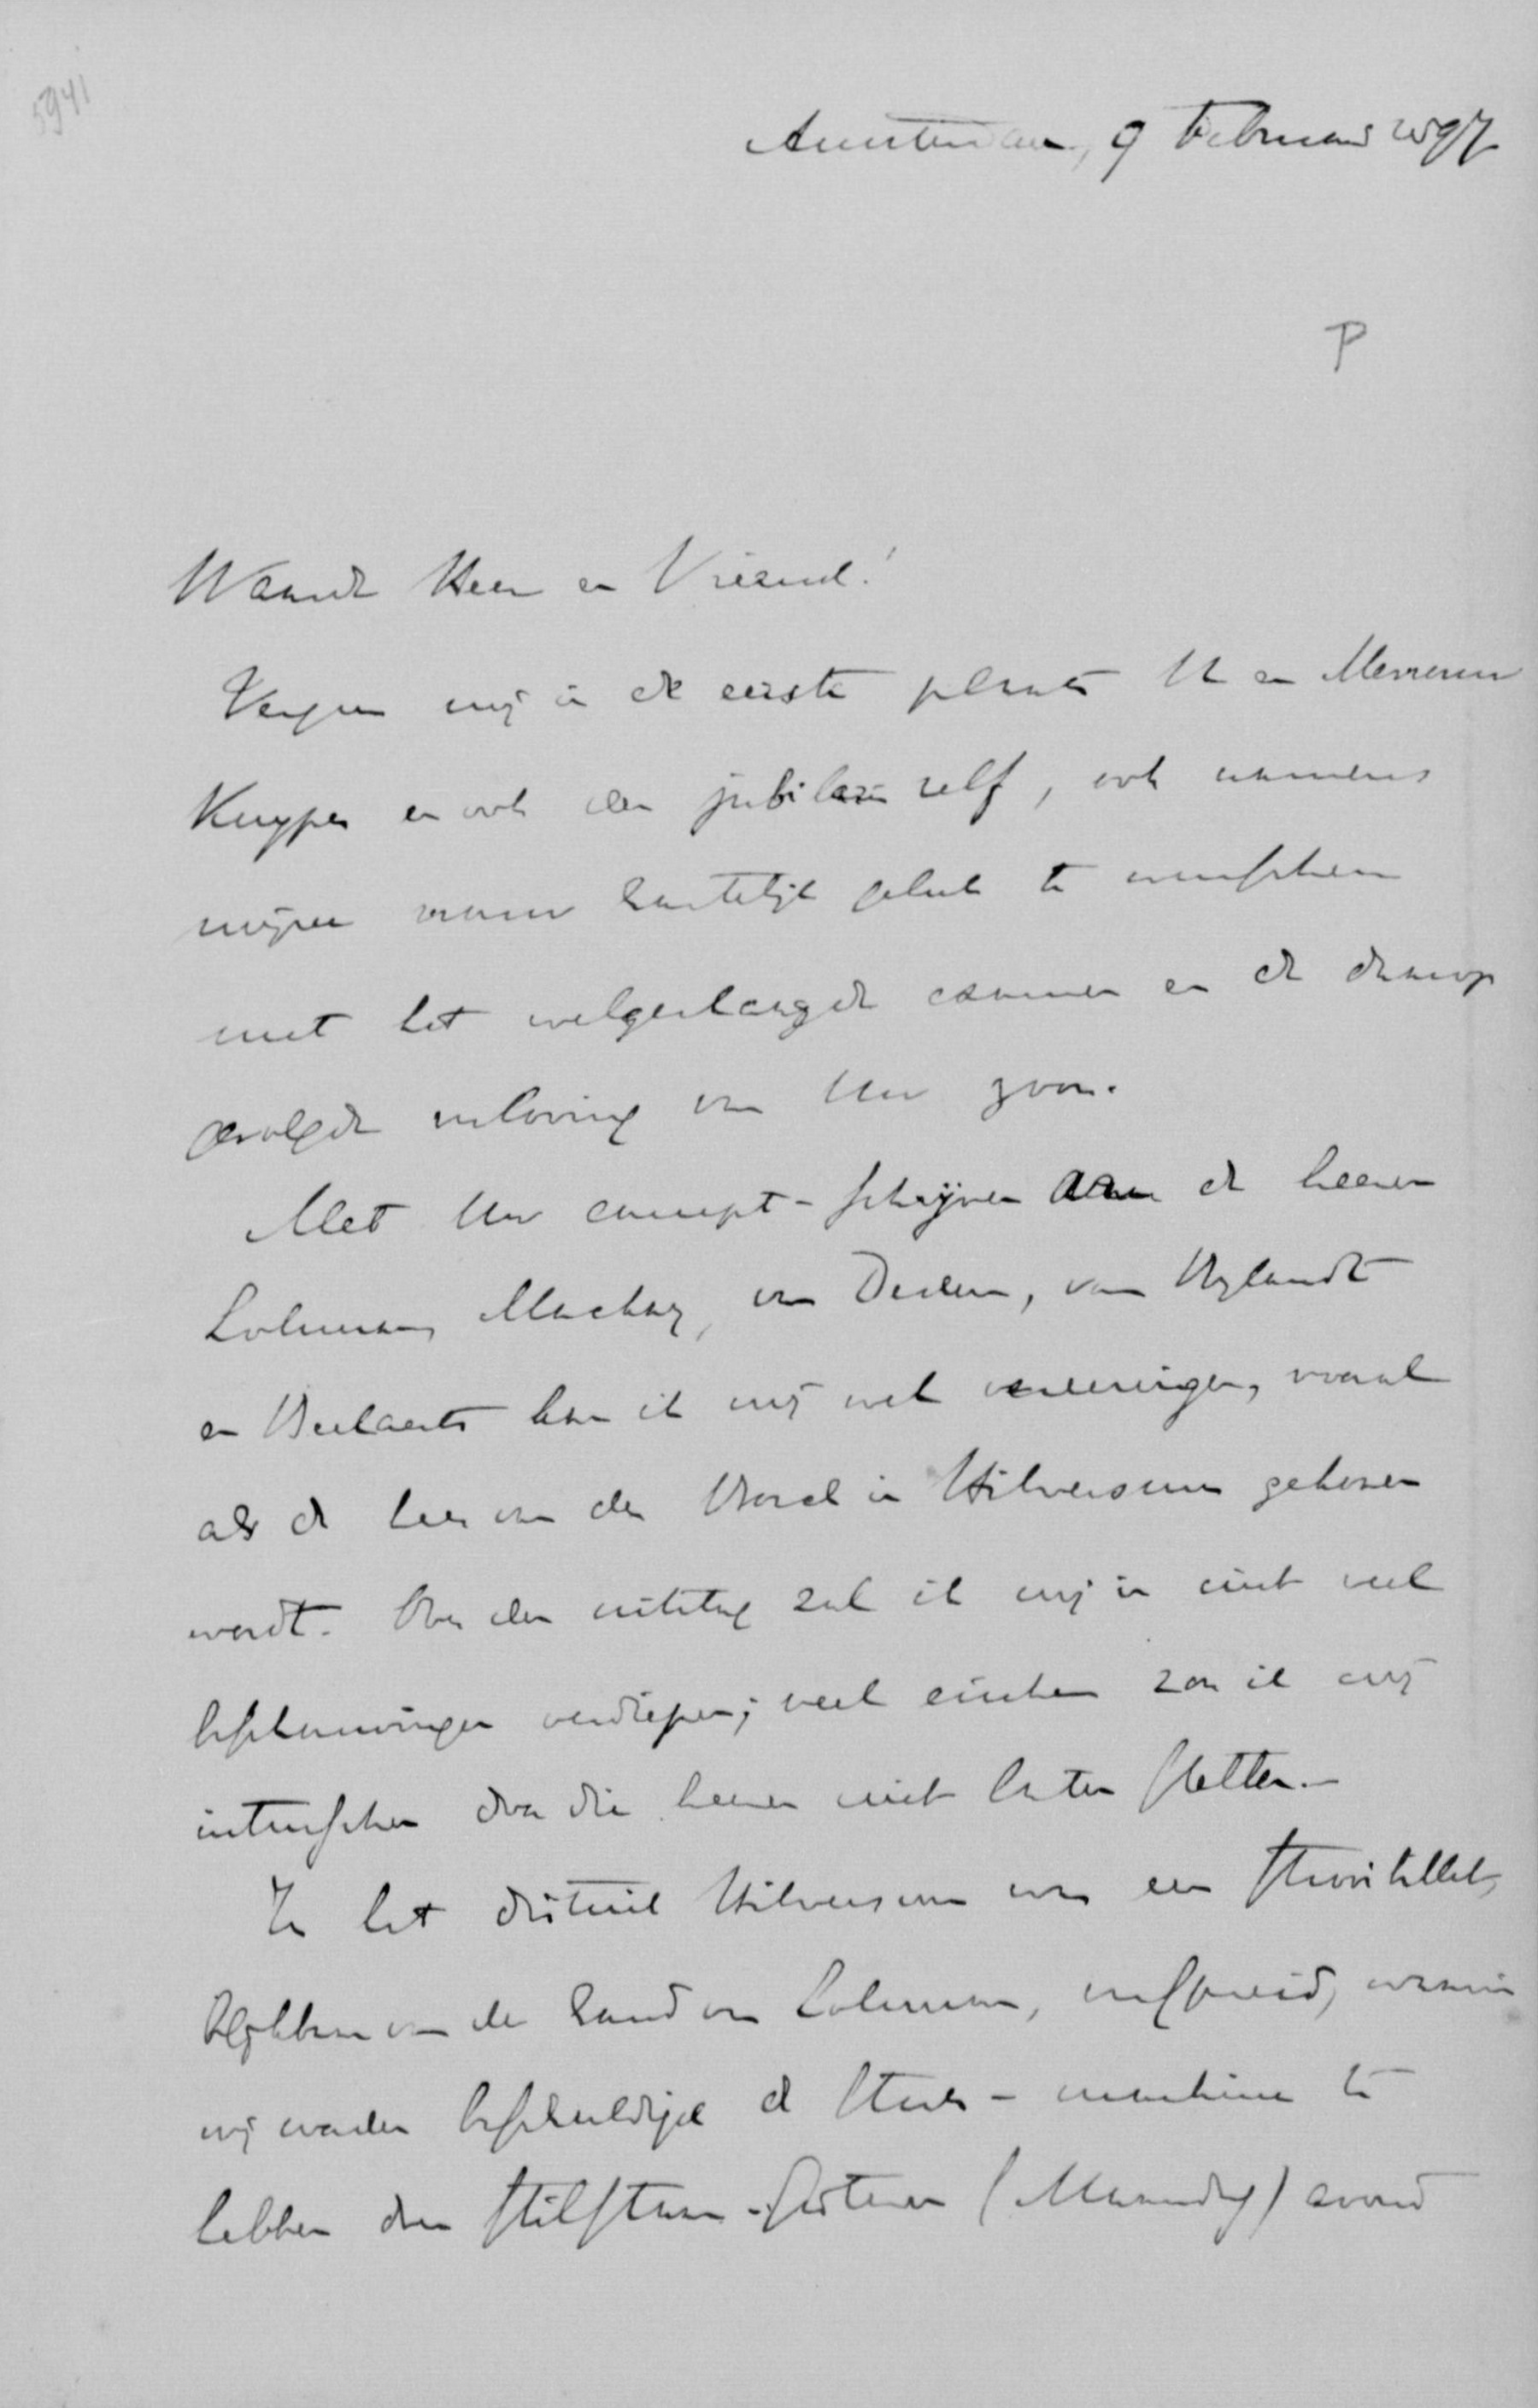 5941
Amsterdam, 9 Februari 1897
P
Waarde Heer en Vriend!
Vergun mij in de eerste plaats U en Mevrouw
Kuyper en ook den jubilaris zelf, ook namens
mijne vrouw hartelijk geluk te wenschen
met het welgeslaagde examen en de daarop
gevolgde verloving van Uw zoon.
Met Uw concept-schrijven aan de heeren
Lohman, Mackay, van Dedem, van Bylandt
en Beelaerts kan ik mij wel vereenigen, vooral
als de heer van der Borch in Hilversum gekozen
wordt. Over den uitslag zal ik mij in niet veel
beschouwingen verdiepen; veel einden zou ik mij
intusschen door die heeren niet laten stellen.
In het district Hilversum was een strooibillet,
afkomstig van de hand van Lohman, verspreid, waarin
wij worden beschuldigd de stoom-machine te
hebben doen stilstaan. Gisteren (Maandag) avond